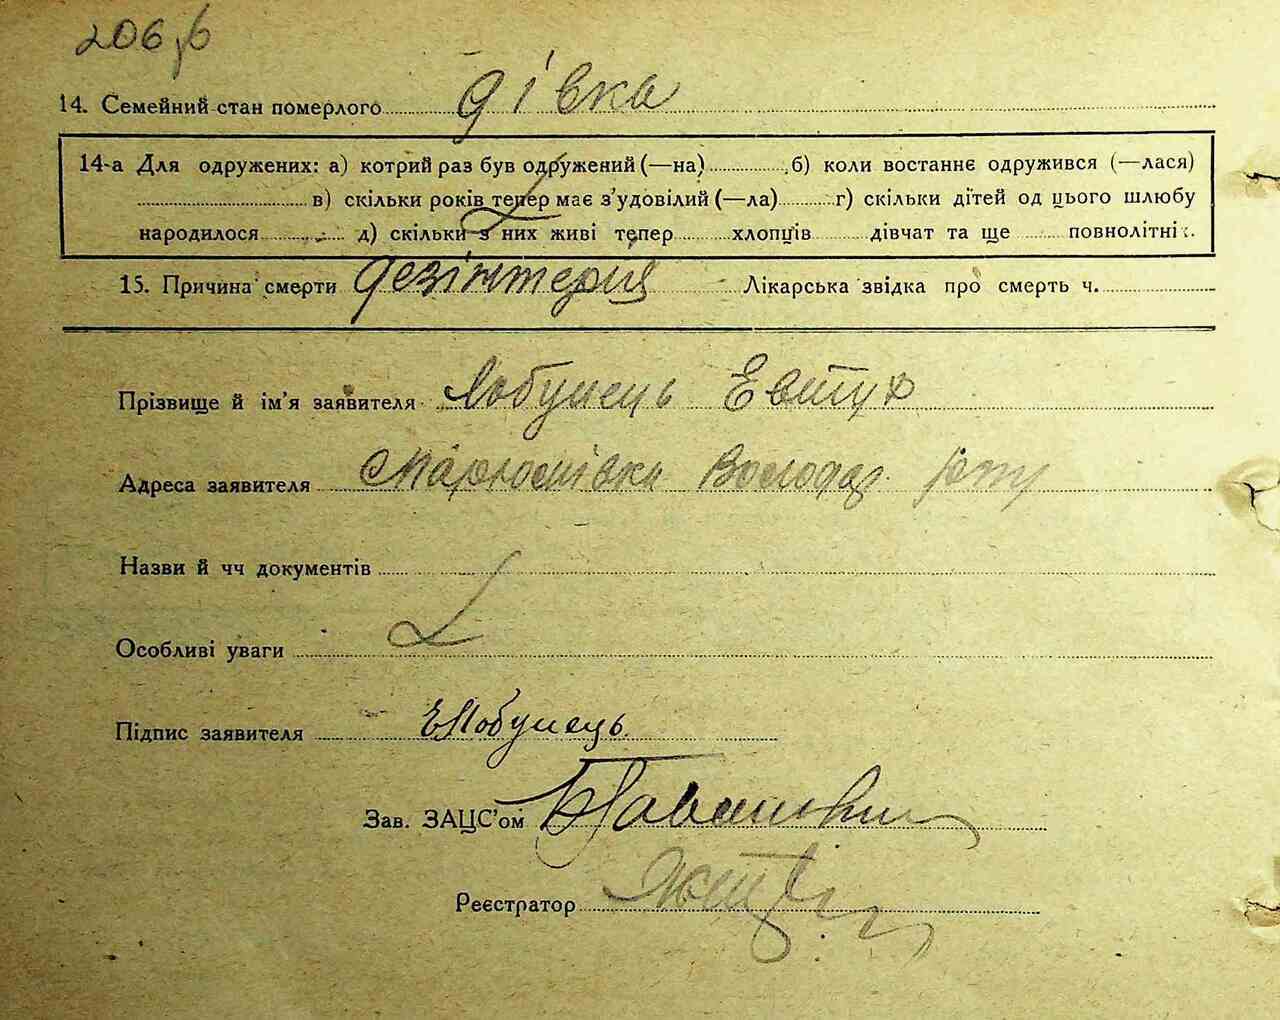 206
14. Семейний стан померлого дівка
14-а Для одружених: а) котрий раз був одружений (—на) б) коли востаннє одружився (—лася)
в) скільки років тепер має з'удовілий (—ла) г) скільки дітей од цього шлюбу
народилося д) скільки з них живі тепер хлопців дівчат та ще повнолітні
15. Причина смерти дезінтерия Лікарська звідка про смерть ч.
Прізвище й ім'я заявителя Евтух
Адреса заявителя Володар. р-ну
Назви й чч документів
Особливі уваги
Підпис заявителя
Зав. ЗАЦС'ом
Реєстратор